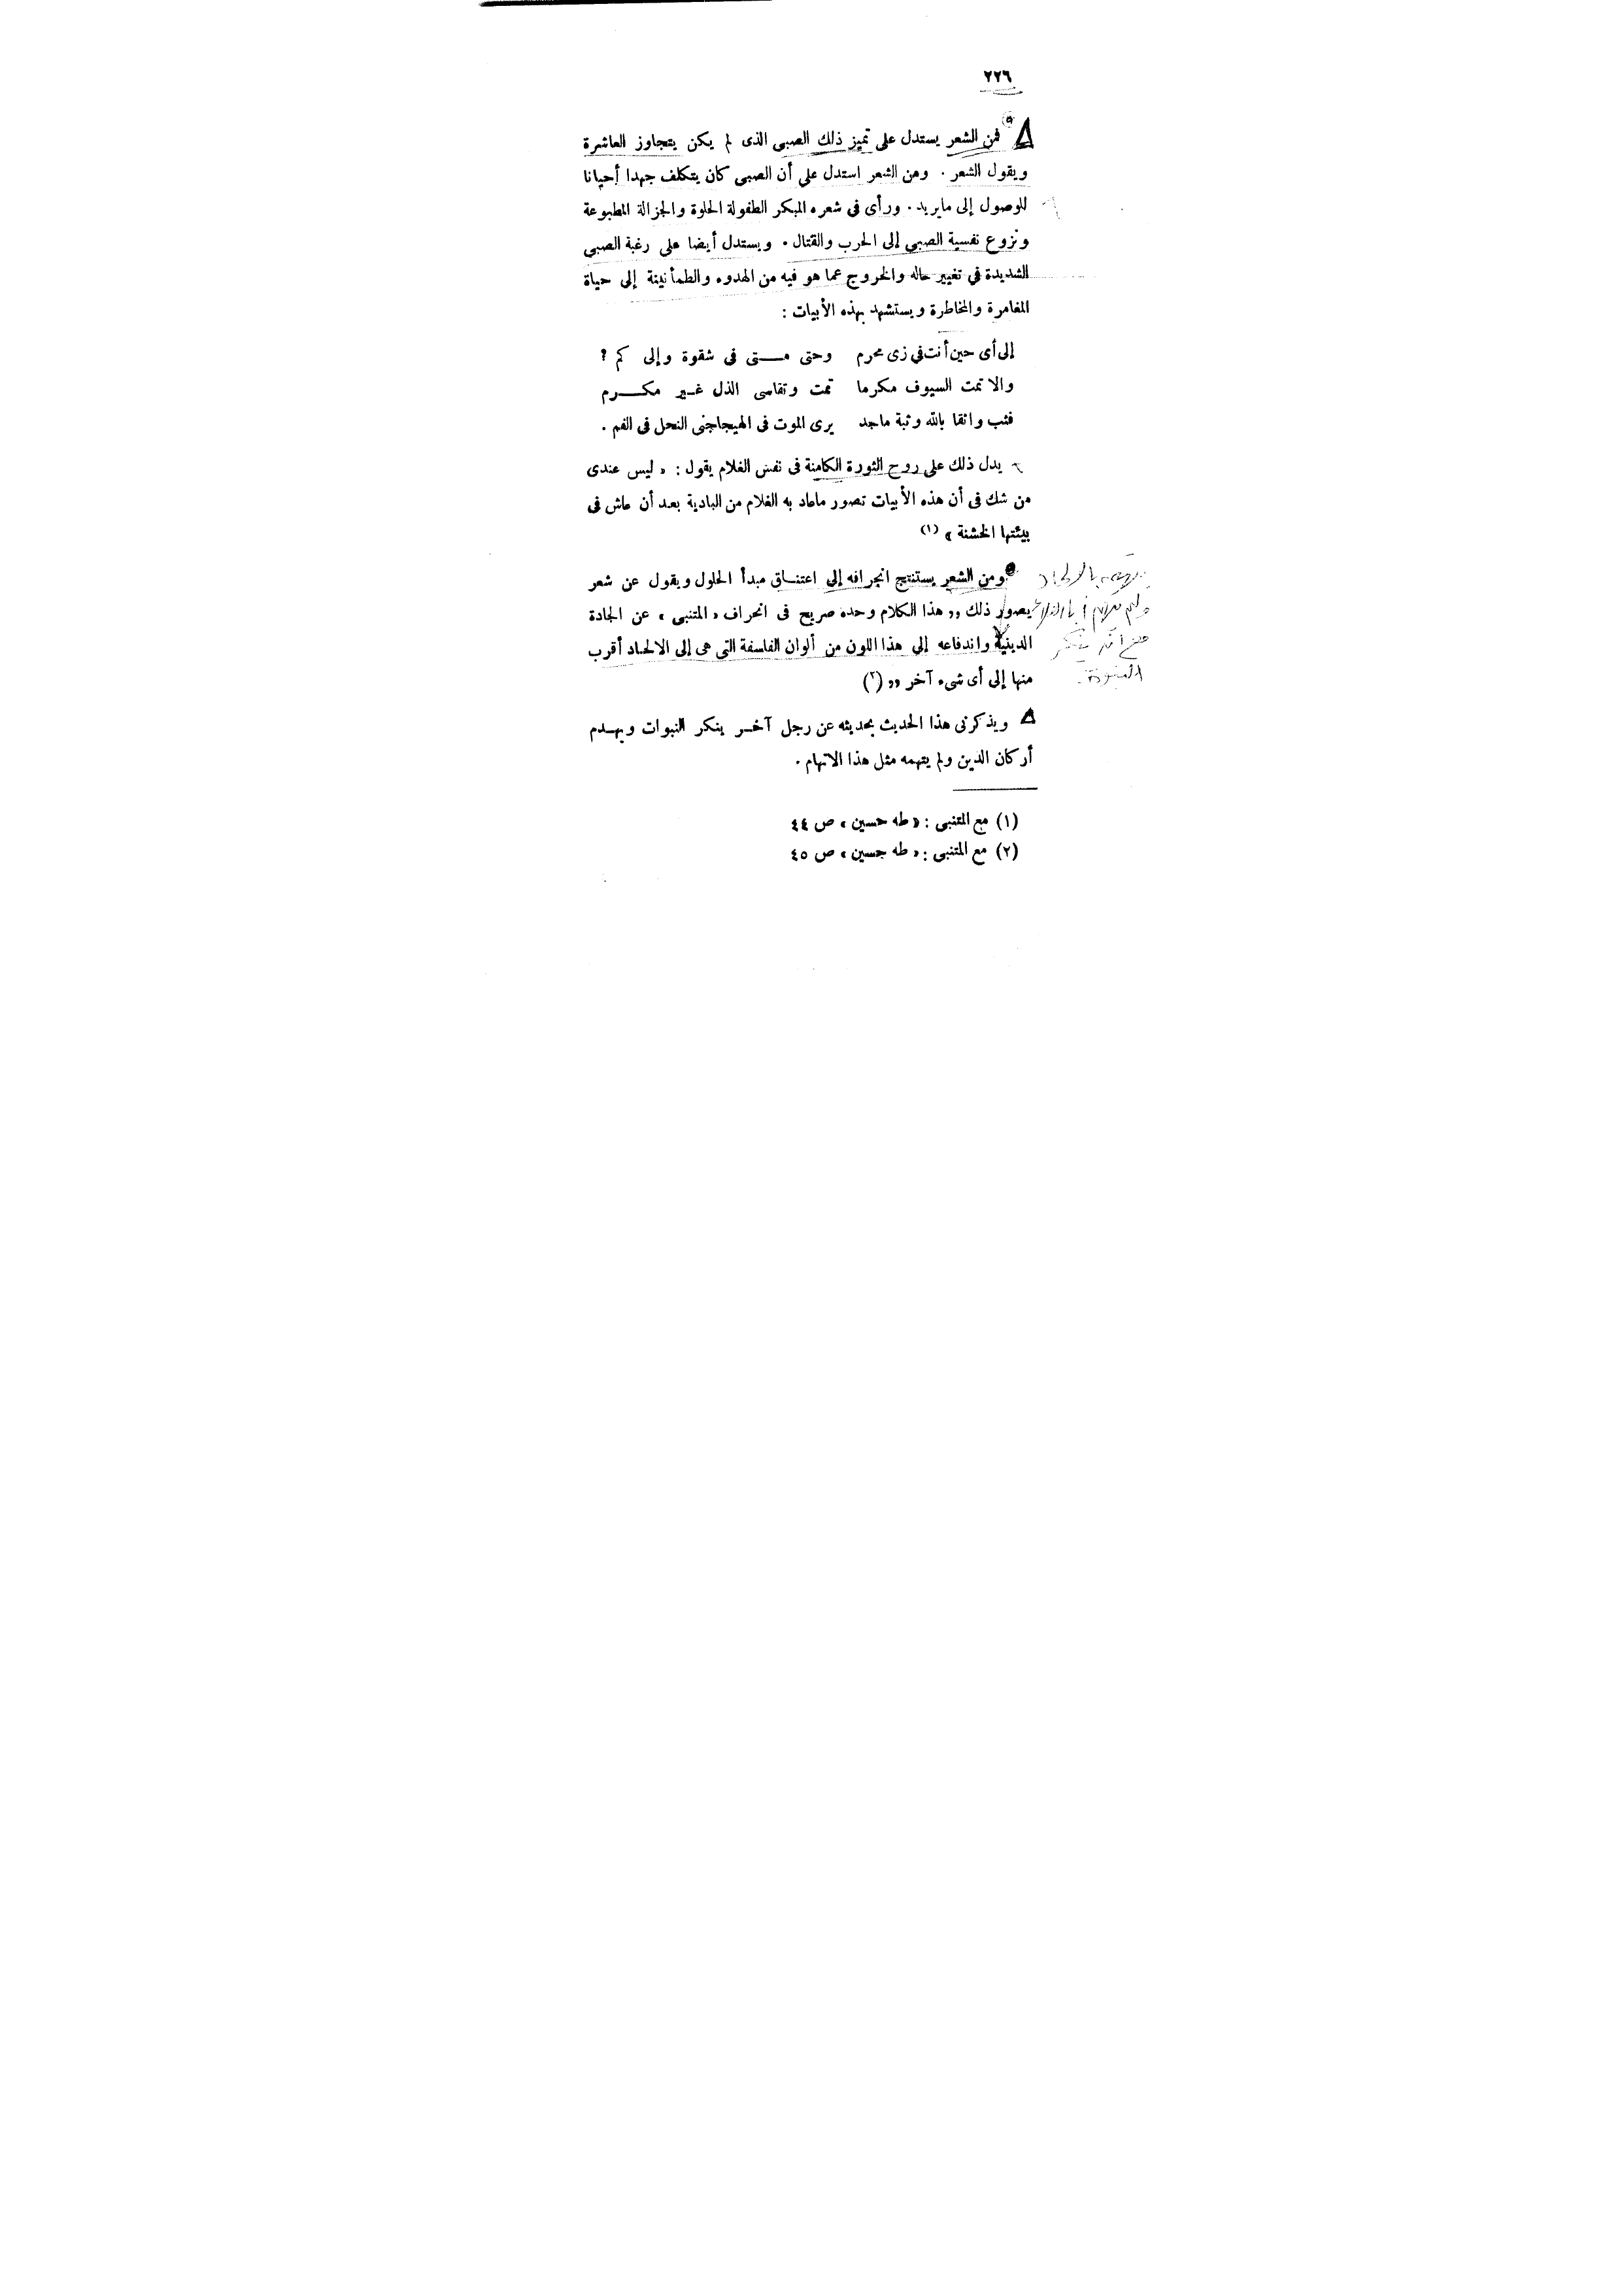 ٢٢٦
فمن الشعر يستدل على تميز ذلك الصبى الذى لم يكن يتجاوز العاشرة
ويقول الشعر . ومن الشعر استدل على أن الصبى كان يتكلف جهدا أحيانا
للوصول إلى مايريد . ورأى فى شعره المبكر الطفولة الحلوة والجزالة المطبوعة
ونزوع نفسية الصبي إلى الحرب والقتال . ويستدل أيضا على رغبة الصبي
الشديدة في تغيير حاله والخروج عما هو فيه من الهدوء والطمأنينة إلى حياة
المغامرة والمخاطرة ويستشهد بهذه الأبيات :
إلى أى حين أنت فى زى محرم وحتى مـــتى فى شقوة وإلى كم ؟
والا تمت السيوف مكرما تمت وتقاسى الذل غـير مكــــرم
فثب واثقا بالله وثبة ماجد يرى الموت فى الهيجاجنى النحل فى الفم .
يدل ذلك على روح الثورة الكامنة فى نفس الغلام يقول : « ليس عندى
من شك فى أن هذه الأبيات تصور ماعاد به الغلام من البادية بعد أن عاش فى
بيئتها الخشنة » (١)
ومن الشعر يستنتج انجرافه إلى اعتنـاق مبدأ الحلول ويقول عن شعر
يصور ذلك ,, هذا الكلام وحده صريح فى انحراف « المتنبى » عن الجادة
الدينية واندفاعه إلى هذا اللون من ألوان الفلسفة التى هى إلى الالحاد أقرب
منها إلى أى شىء آخر ,, (٢)
ويذكرنى هذا الحديث بحديثه عن رجل آخـر ينكر النبوات ويهـدم
أركان الدين ولم يتهمه مثل هذا الاتهام .
(١) مع المتنبى : « طه حسين » ص ٤٤
(٢) مع المتنبى : « طه حسين » ص ٤٥